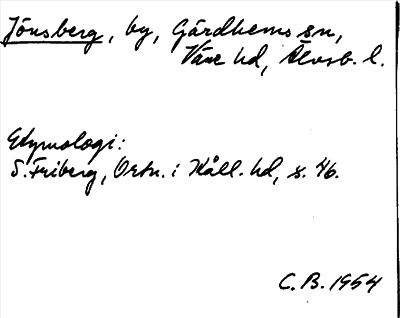 Jönsberg, by, Gärdhems sn,
Väne hd, Älvsb. l.
Etymologi:
S. Friberg, Ortn. i Kåll. hd, s. 46.
C. B. 1954